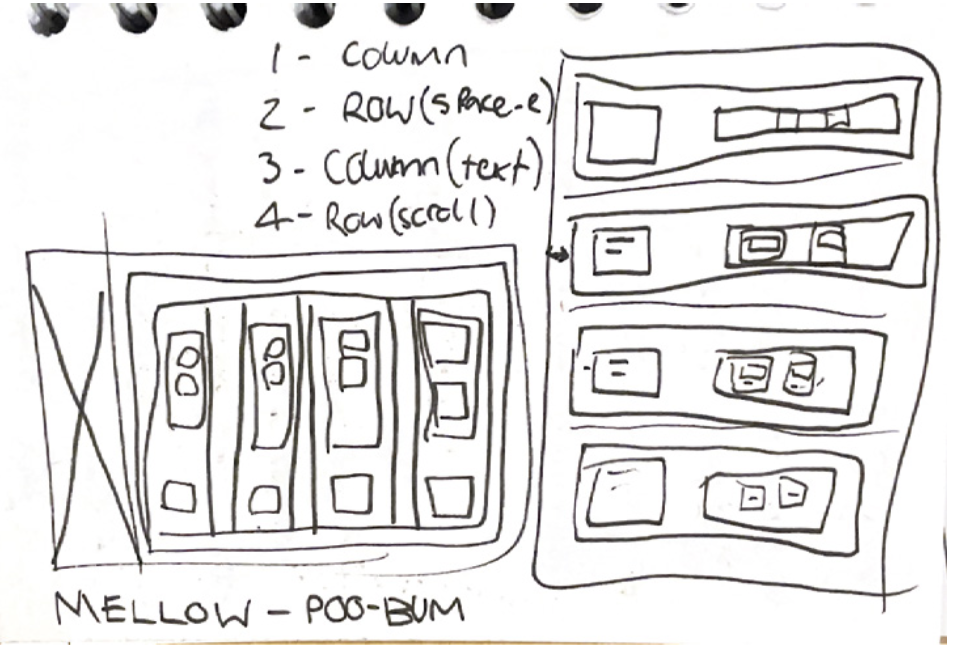 1 - Column
2 - Row (space-e)
3 - Column (text)
4 - Row (scroll)
MELLOW - POO-BUM